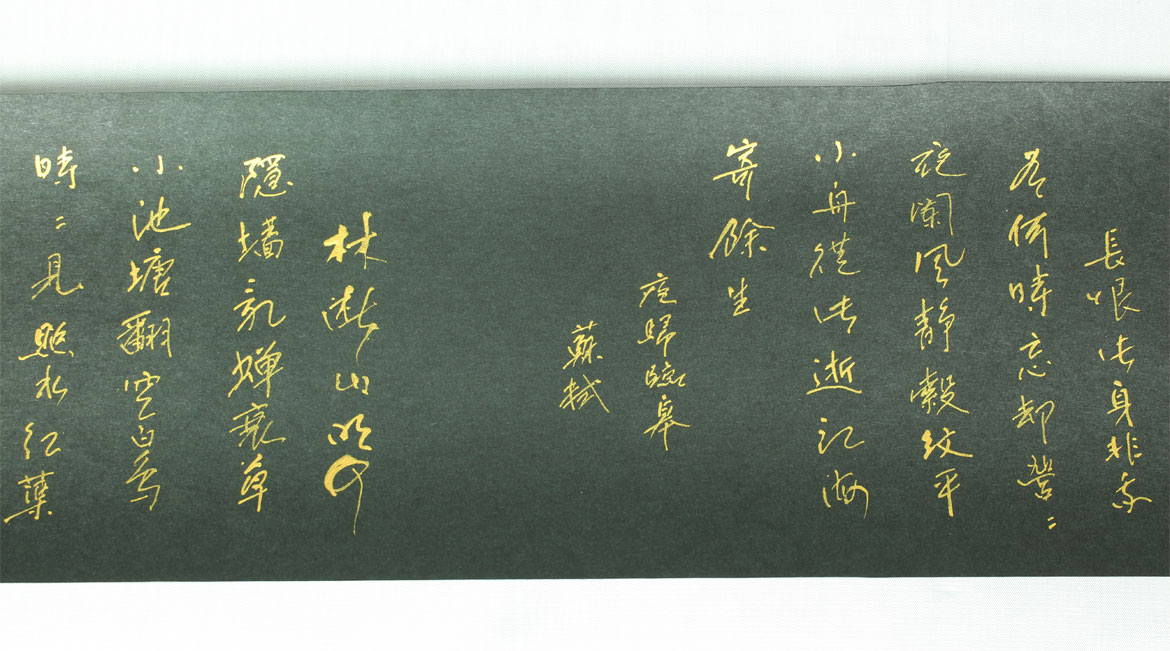 長恨此身非我
有何時忘却營〻
夜闌風靜縠紋平
小舟從此逝江海
寄餘生
夜歸臨皋
蘇軾
林斷山明竹
隱墻亂蟬衰草
小池塘翻空白鳥
時〻見照水紅蕖